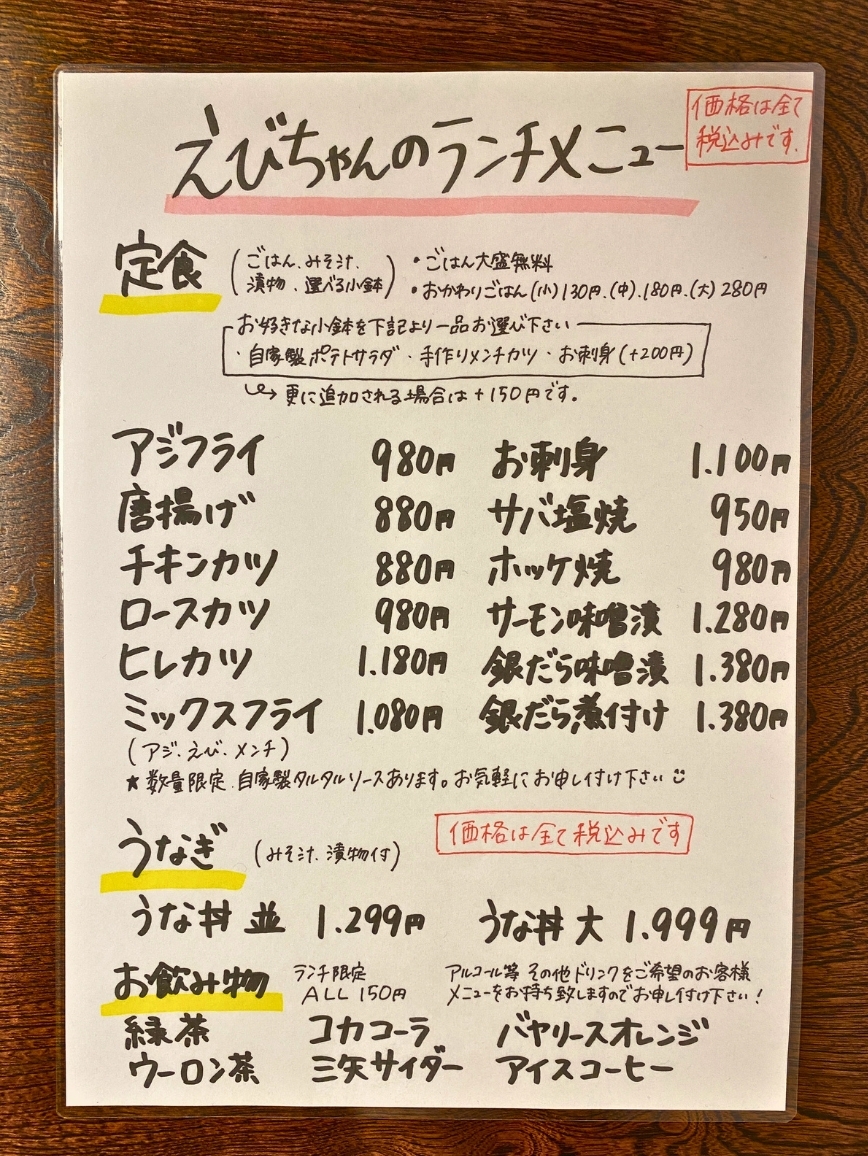 えびちゃんのランチメニュー
価格は全て
税込みです.
定食
(ごはん、みそ汁、
漬物、選べる小鉢)
・ごはん大盛無料
・おかわりごはん(小)130円.(中).180円.(大)280円
お好きな小鉢を下記より一品お選び下さい
・自家製ポテトサラダ ・手作りメンチカツ ・お刺身(+200円)
更に追加される場合は+150円です。
アジフライ 980円 お刺身 1.100円
唐揚げ 880円 サバ塩焼 950円
チキンカツ 880円 ホッケ焼 980円
ロースカツ 980円 サーモン味噌漬 1.280円
ヒレカツ 1.180円 銀だら味噌漬 1.380円
ミックスフライ 1.080円 銀だら煮付け 1.380円
(アジ、えび、メンチ)
★数量限定.自家製タルタルソースあります。お気軽にお申し付け下さい
うなぎ (みそ汁、漬物付)
価格は全て税込みです
うな丼 並 1.299円 うな丼 大 1.999円
お飲み物
ランチ限定
ALL 150円
アルコール等 その他ドリンクをご希望のお客様
メニューをお持ち致しますのでお申し付け下さい!
緑茶 コカコーラ バヤリースオレンジ
ウーロン茶 三矢サイダー アイスコーヒー